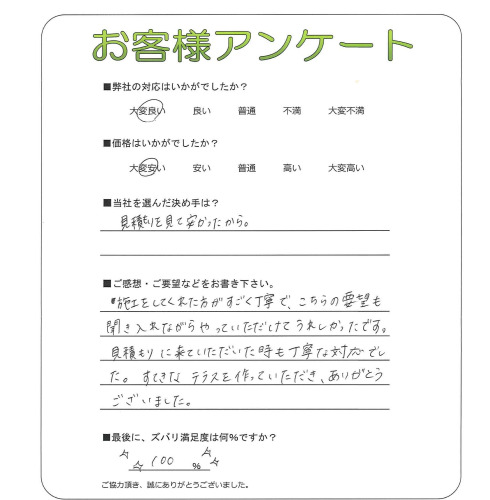 お客様アンケート
■弊社の対応はいかがでしたか？
大変良い 良い 普通 不満 大変不満
■価格はいかがでしたか？
大変安い 安い 普通 高い 大変高い
■当社を選んだ決め手は？
見積もりを見て安かったから。
■ご感想・ご要望などをお書き下さい。
施工をしてくれた方がすごく丁寧で、こちらの要望も
聞き入れながらやっていただけてうれしかったです。
見積もりに来ていただいた時も丁寧な対応でし
た。すてきなテラスを作っていただき、ありがとう
ございました。
■最後に、ズバリ満足度は何%ですか？
☆☆ 100 % ☆☆
ご協力頂き、誠にありがとうございました。